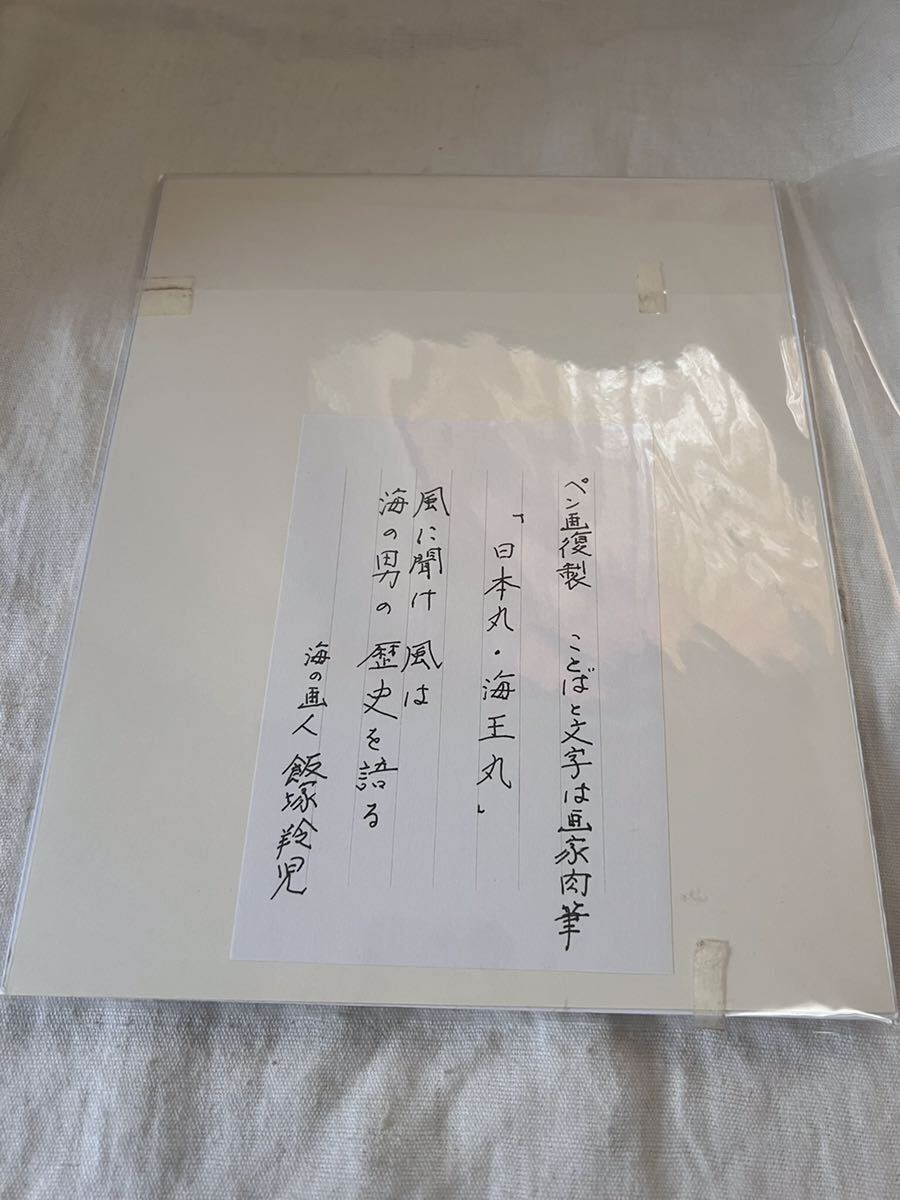 ペン画復製 ことばと文字は画家肉筆
「日本丸・海王丸」
風に聞け 風は
海の男の 歴史を語る
海の画人 飯塚羚児